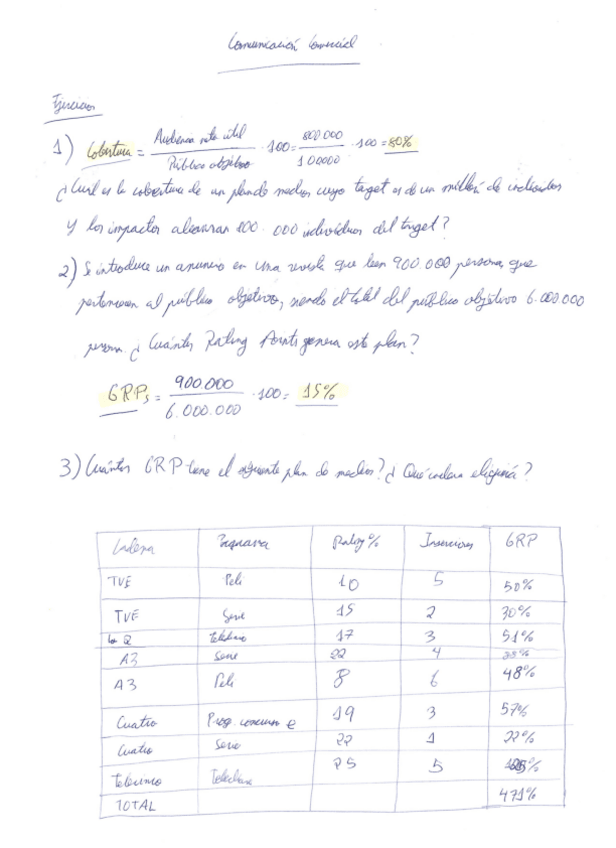 Comunicación Comercial
Ejercicios
1) Cobertura = Audiencia neta útil / Público objetivo · 100 = 800.000 / 100000 · 100 = 80%
¿Cual es la cobertura de un plan de medios cuyo target es de un millón de individuos
y los impactos alcanzan 800.000 individuos del target?
2) Se introduce un anuncio en una revista que leen 900.000 personas que
pertenecen al público objetivo, siendo el total del público objetivo 6.000.000
person. ¿Cuántos Rating Points genera este plan?
GRPs = 900.000 / 6.000.000 · 100 = 15%
3) Cuántos GRP tiene el siguiente plan de medios? ¿Qué cadena eligirá?
Cadena Programa Rating % Inserciones GRP
TVE Peli 10 5 50%
TVE Serie 15 2 30%
la 2 telediario 17 3 51%
A3 Serie 22 4
A3 Peli 8 6 48%
Cuatro Prog. concurso 19 3 57%
Cuatro Serie 22 1 22%
Telecinco 25 5
TOTAL 471%